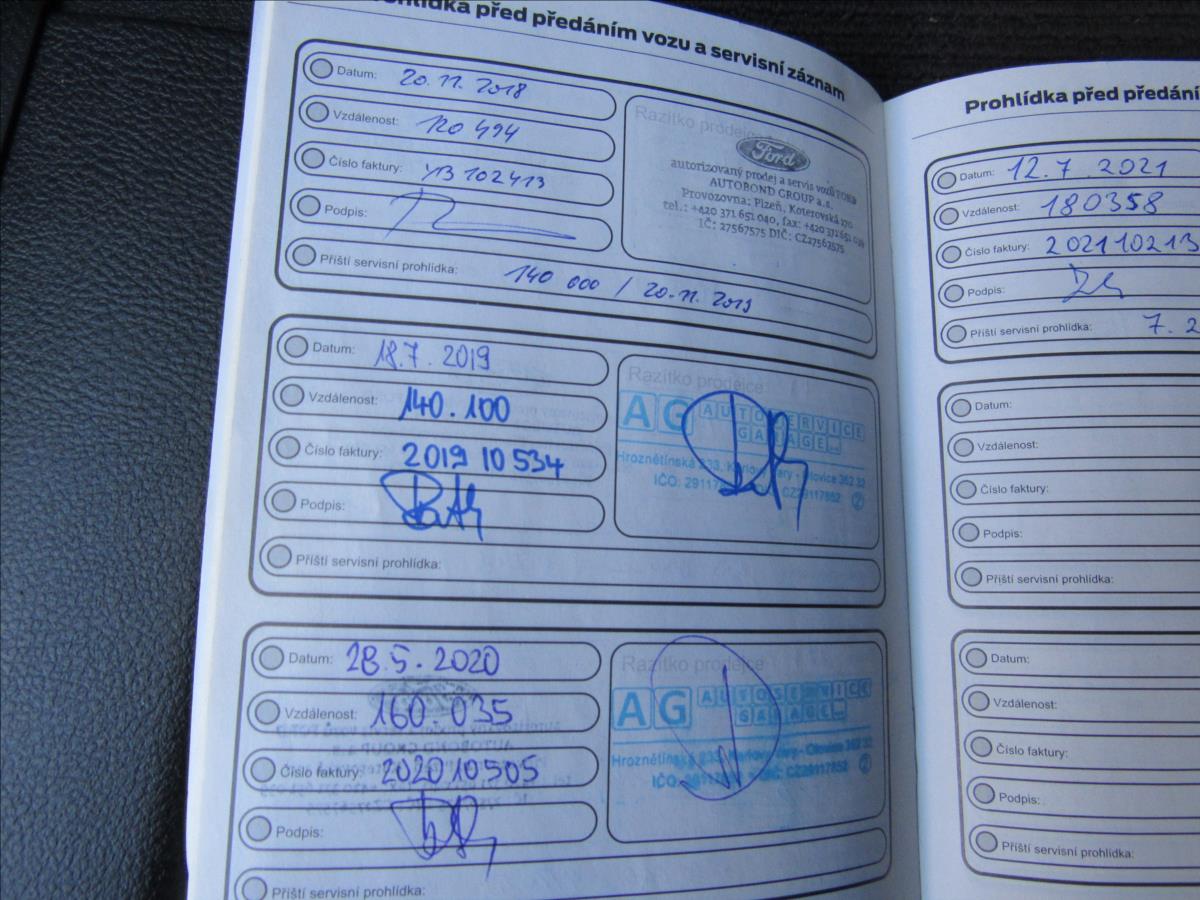 Prohlídka před předáním vozu a servisní záznam
Datum: 20.11.2018
Vzdálenost: 120 494
Číslo faktury: 102413
Podpis:
Příští servisní prohlídka: 140 000 / 20.11.2019
Razítko prodejce
Ford
autorizovaný prodej a servis vozů FORD
AUTOBOND GROUP a.s.
Provozovna: Plzeň, Koterovská
tel.: +420 371 651 040, fax: +420 371 651
IČ: 27567575 DIČ: CZ27567575
Datum: 18.7.2019
Vzdálenost: 140.100
Číslo faktury: 2019 10 534
Podpis:
Příští servisní prohlídka:
Razítko prodejce
AG AUTOSERVICE
GARAGE
Hroznětínská 233, Karlovy Vary - Olovice 362 32
IČO: CZ29117852 2
Datum: 28.5.2020
Vzdálenost: 160 035
Číslo faktury: 2020 10 505
Podpis:
Příští servisní prohlídka:
Razítko prodejce
AG AUTOSERVICE
GARAGE
Hroznětínská 233, Karlovy Vary - Olovice 362 32
IČO: DIČ: CZ29117852 2
Prohlídka před předání
Datum: 12.7.2021
Vzdálenost: 180358
Číslo faktury: 202110213
Podpis:
Příští servisní prohlídka: 7.2
Datum:
Vzdálenost:
Číslo faktury:
Podpis:
Příští servisní prohlídka:
Datum:
Vzdálenost:
Číslo faktury:
Podpis:
Příští servisní prohlídka: